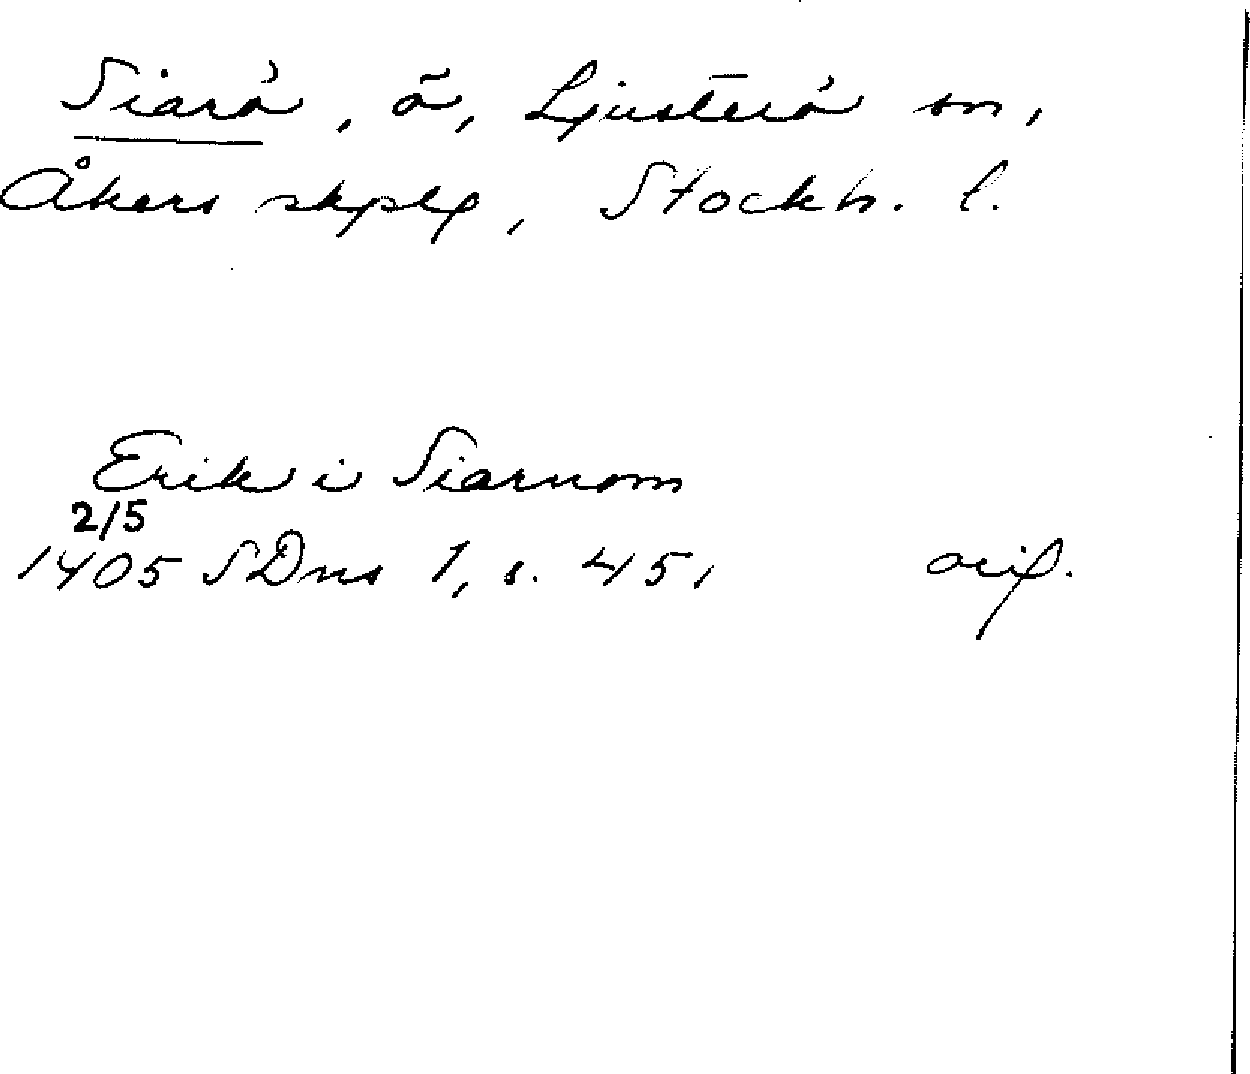 Siarö, ö, Ljusterö sn,
Åkers skplg, Stockh. l.
Erik i Siarnom
2/5
1405 SDns 1, s. 45,   orig.